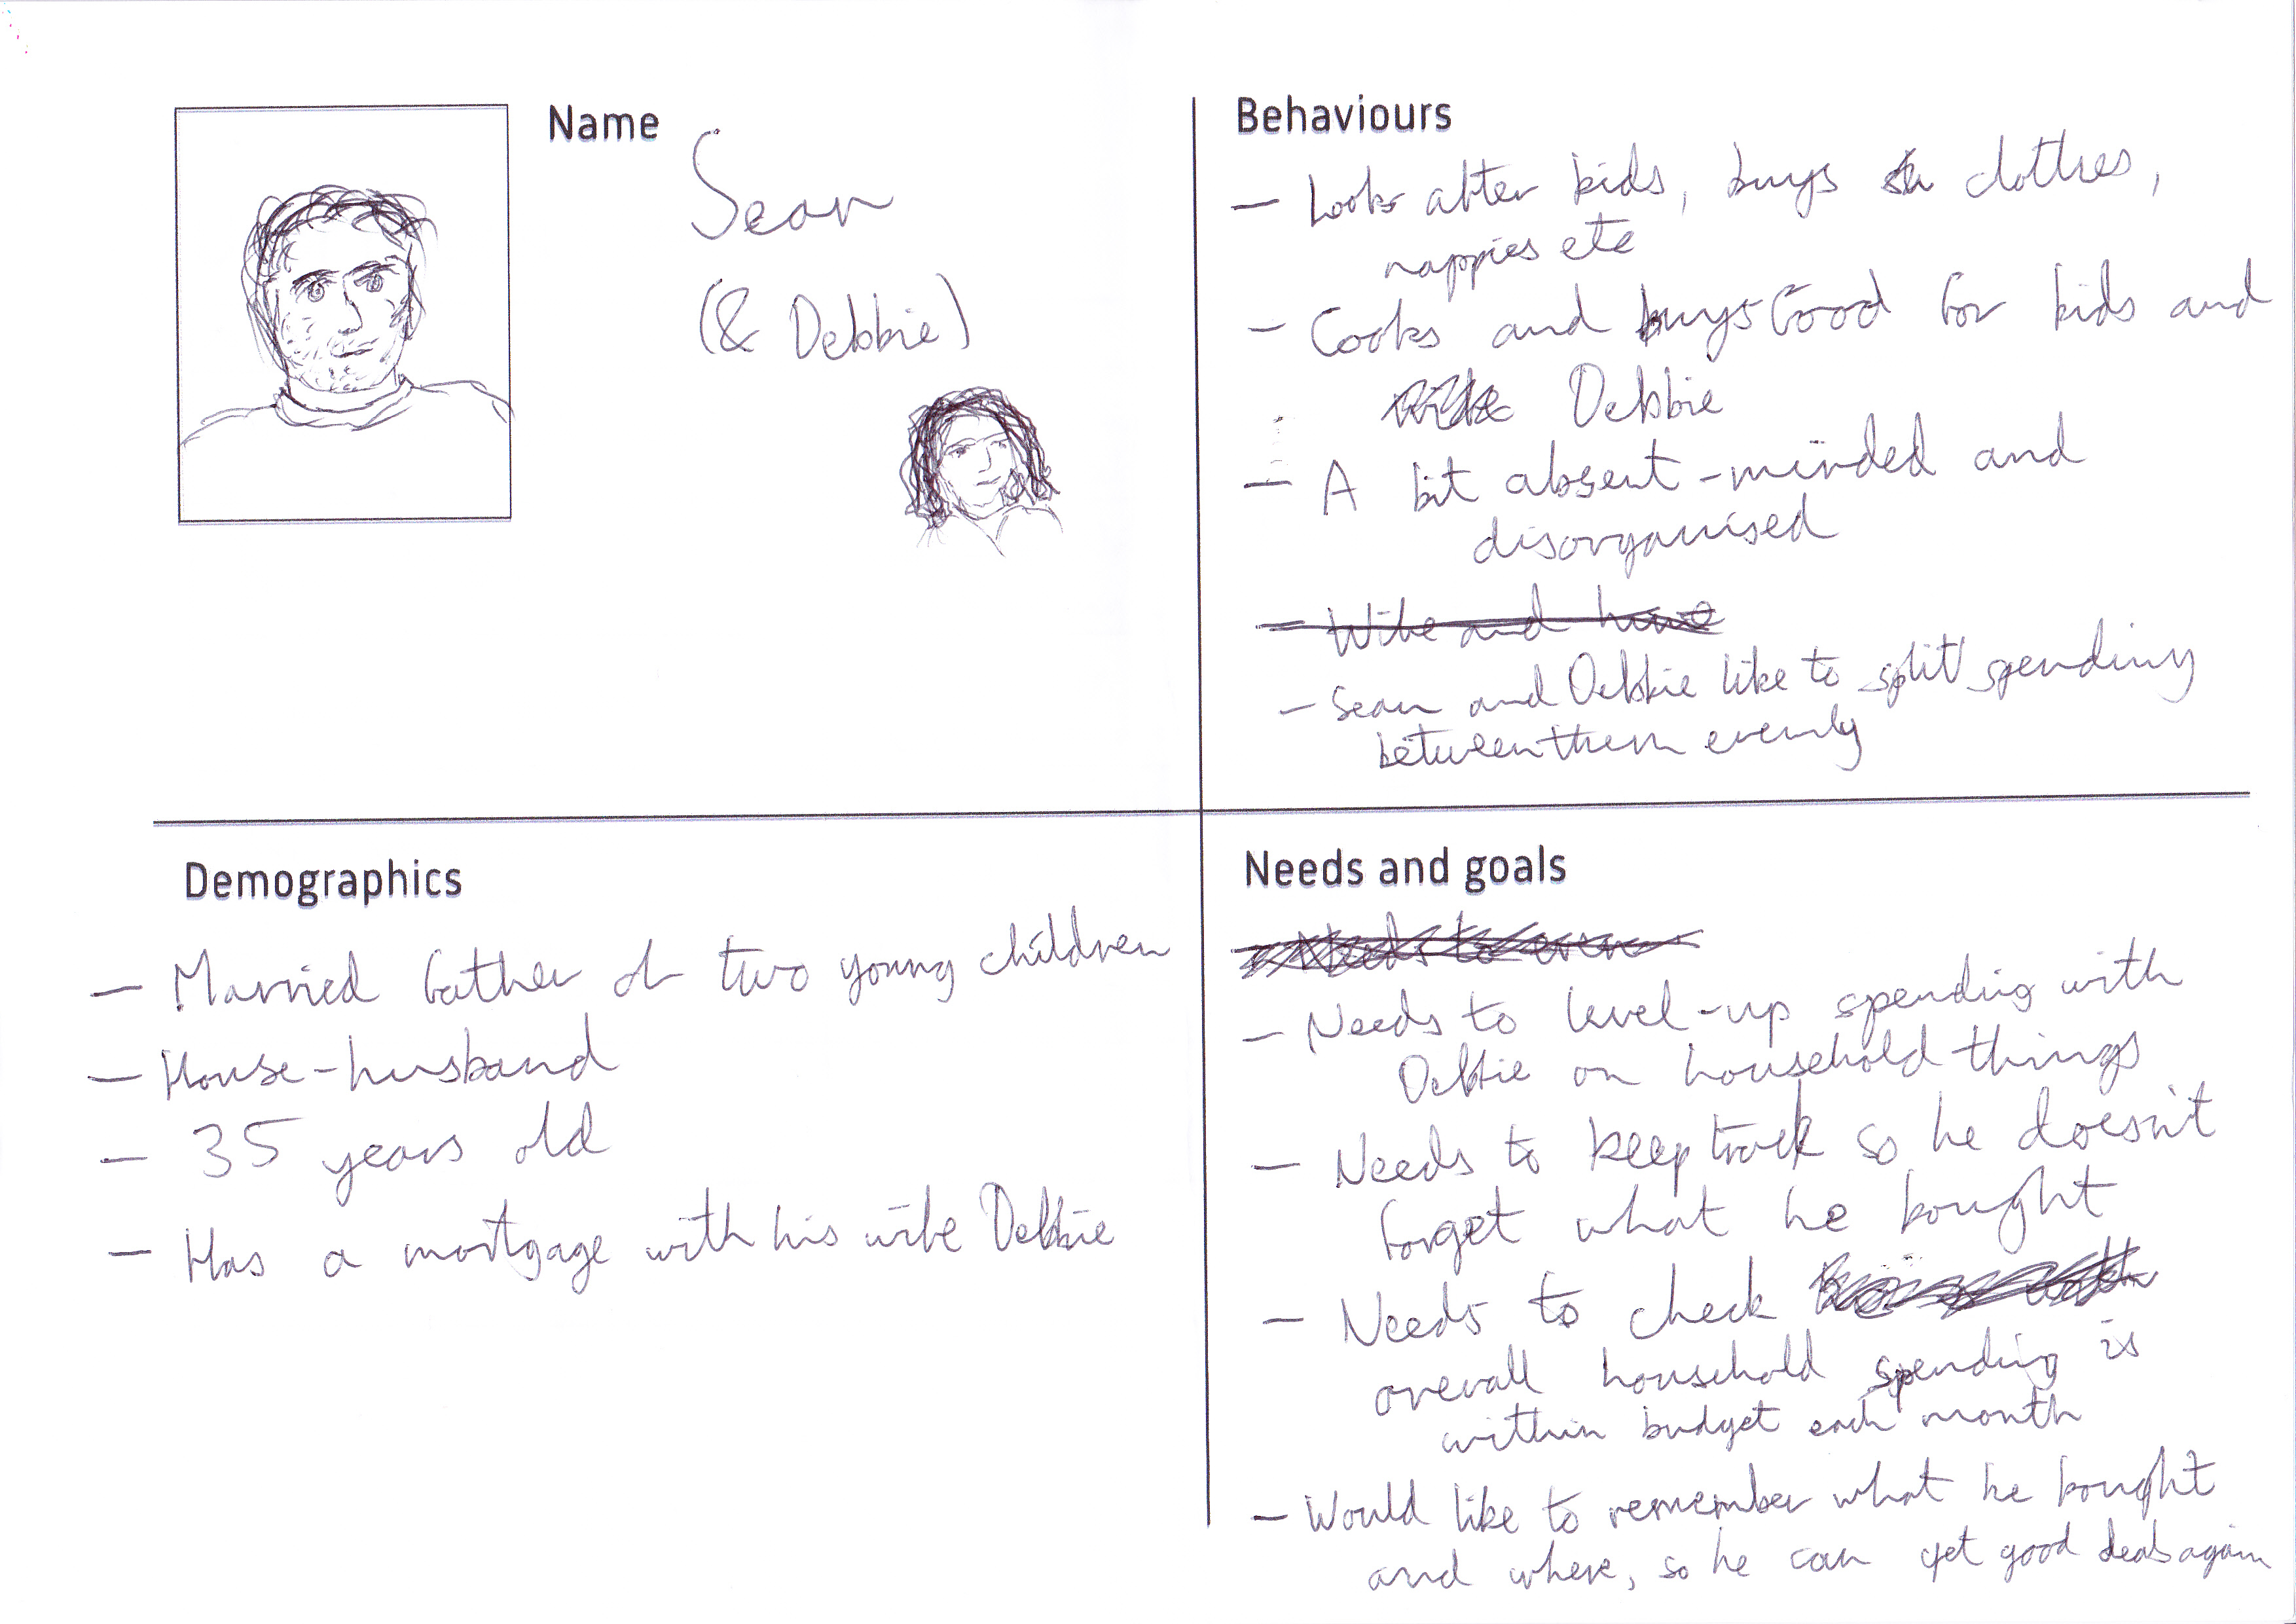 Name
Sean
(& Debbie)
Behaviours
- Looks after kids, buys clothes,
nappies etc
- Cooks and buys food for kids and
Debbie
- A bit absent-minded and
disorganised
- Wife and have
- Sean and Debbie like to split spending
between them evenly
Demographics
- Married father of two young children
- House-husband
- 35 years old
- Has a mortgage with his wife Debbie
Needs and goals
- Needs to
- Needs to level-up spending with
Debbie on household things
- Needs to keep track so he doesn't
forget what he bought
- Needs to check
overall household spending is
within budget each month
- Would like to remember what he bought
and where, so he can get good deals again